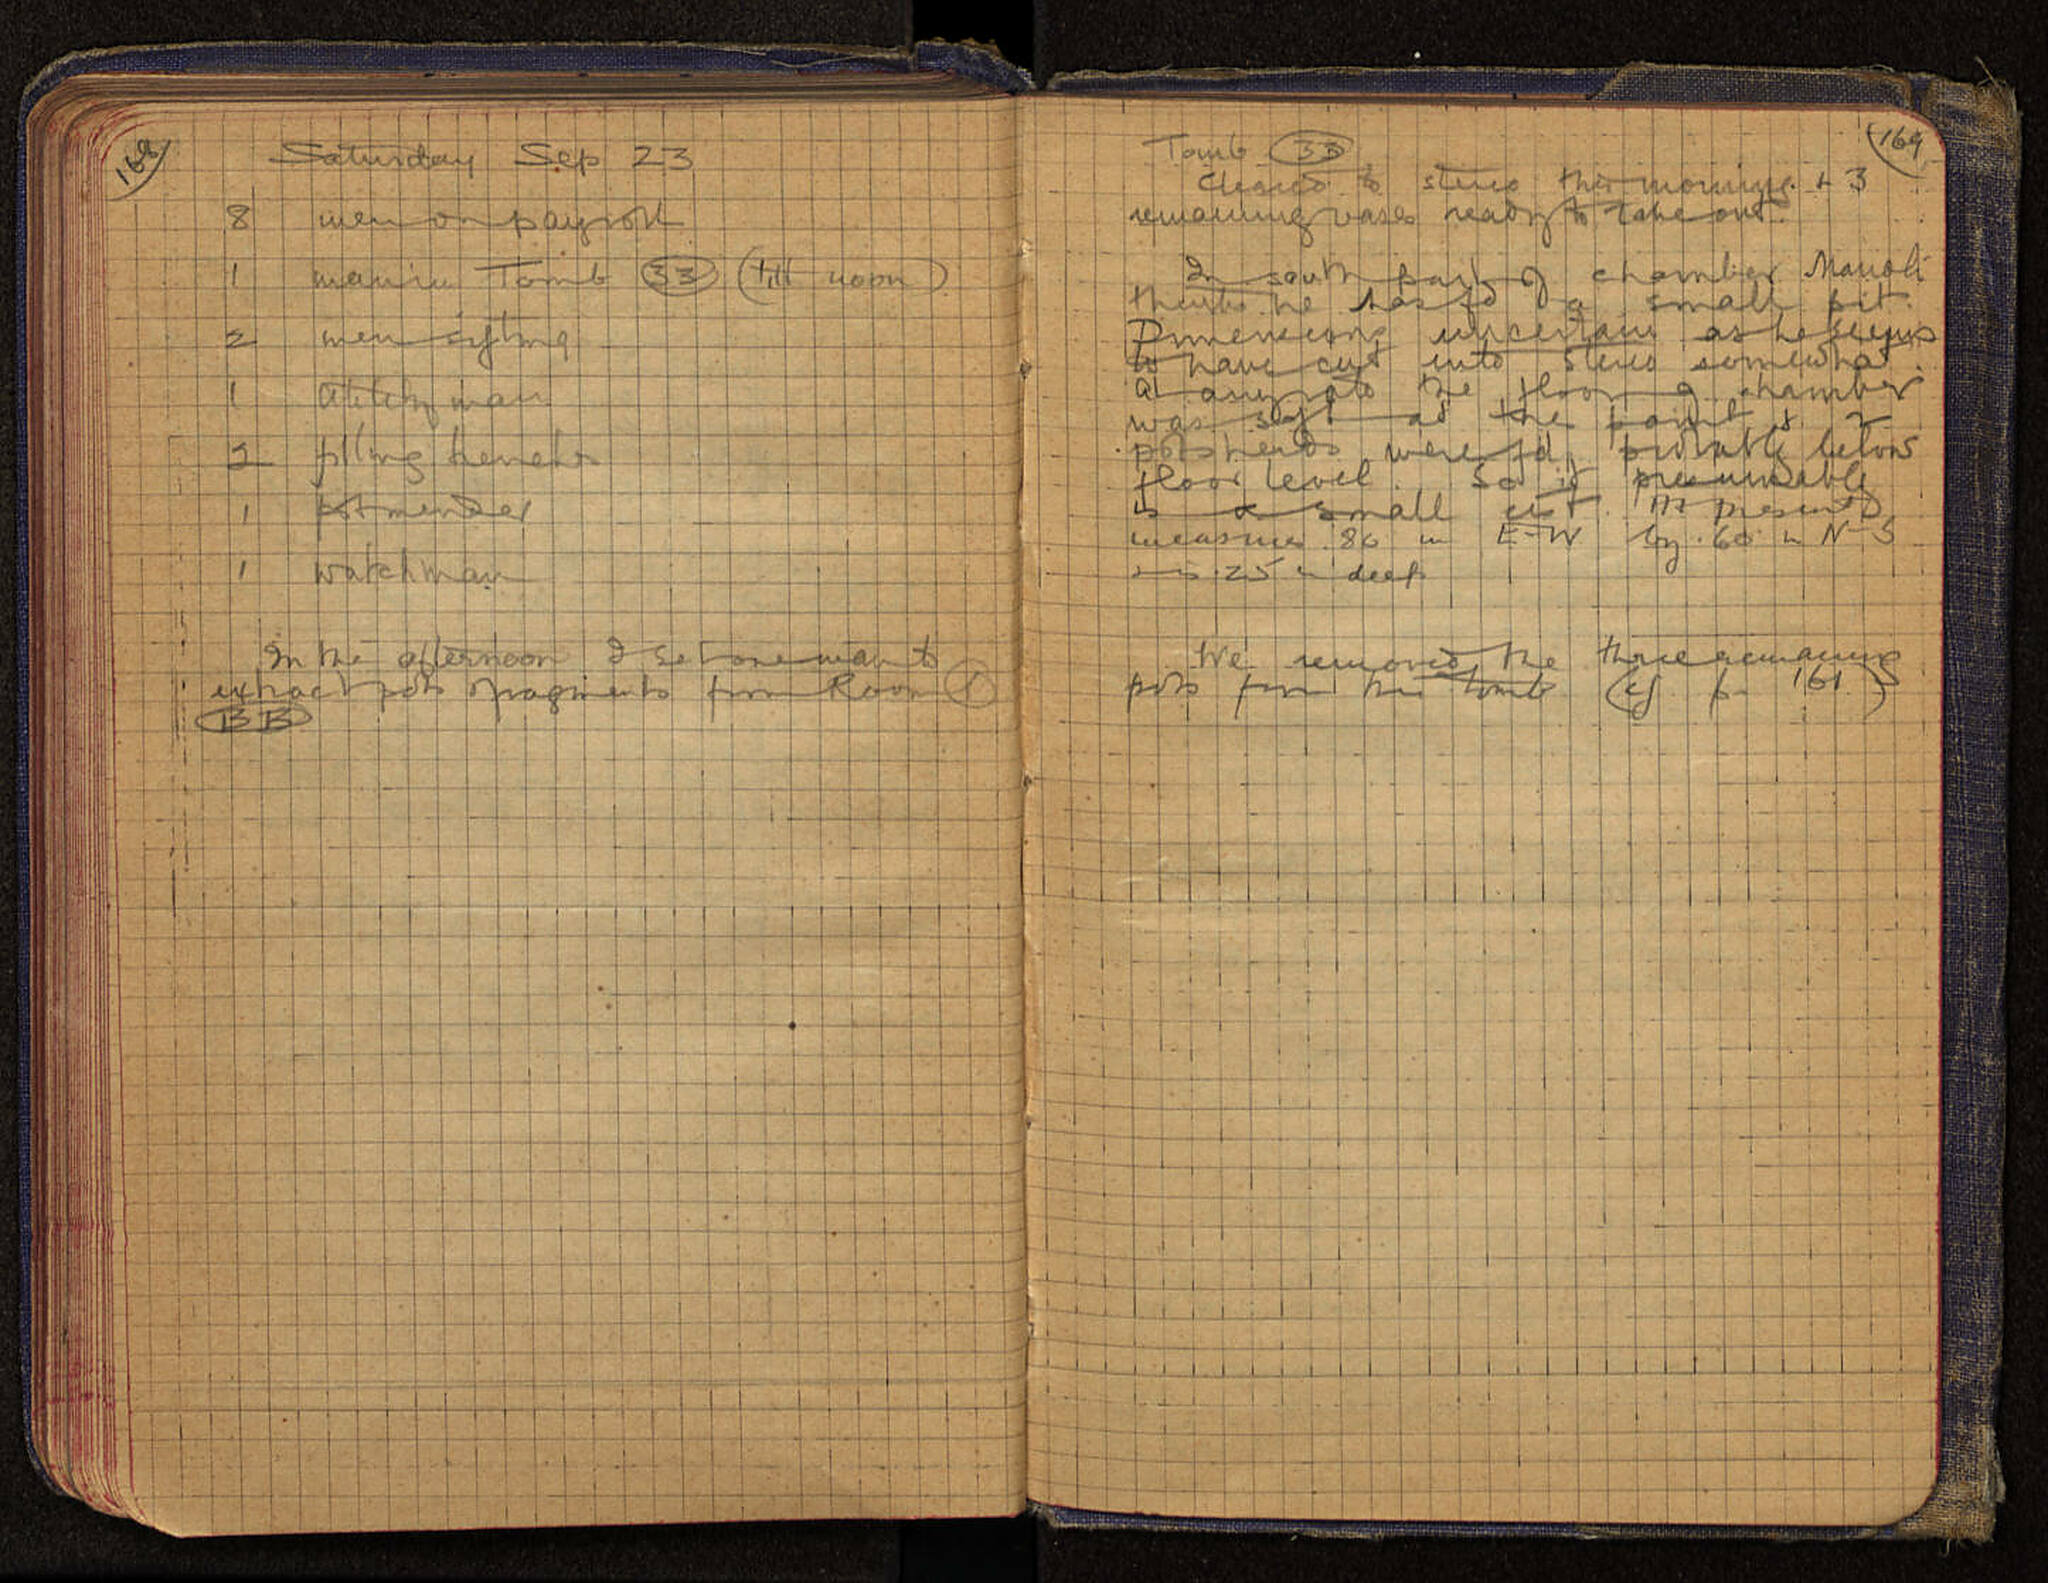 168
Saturday Sep 23
8 men on payroll
1 man in Tomb 33 (till noon)
2 men sifting
1 man
2 filling trenches
1 potmender
1 watchman
In the afternoon I set one man to
extract pots & fragments from Room
BB
169
Tomb 33
Cleared to stereo this morning. + 3
remaining vases ready to take out.
In south part of chamber Manoli
thinks he has fd a small pit.
Dimensions uncertain as he seems
to have cut into stereo somewhat.
At any rate the floor of chamber
was soft at the point & 2
potsherds were fd, probably below
floor level. So it presumably
is a small cist. At present
measures .80 m E-W by .60 m N-S
and is .25 m deep
We removed the three remaining
pots from this tomb (cf p. 161)